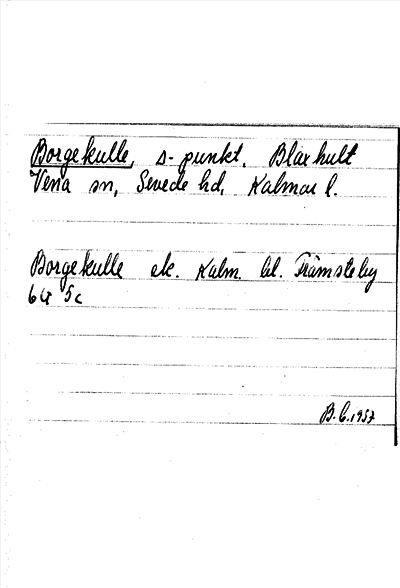 Borgekulle, s-punkt, Blaxhult
Vena sn, Sevede hd, Kalmar l.
Borgekulle ek. Kalm. bl.
6G 5c
B.C. 1957